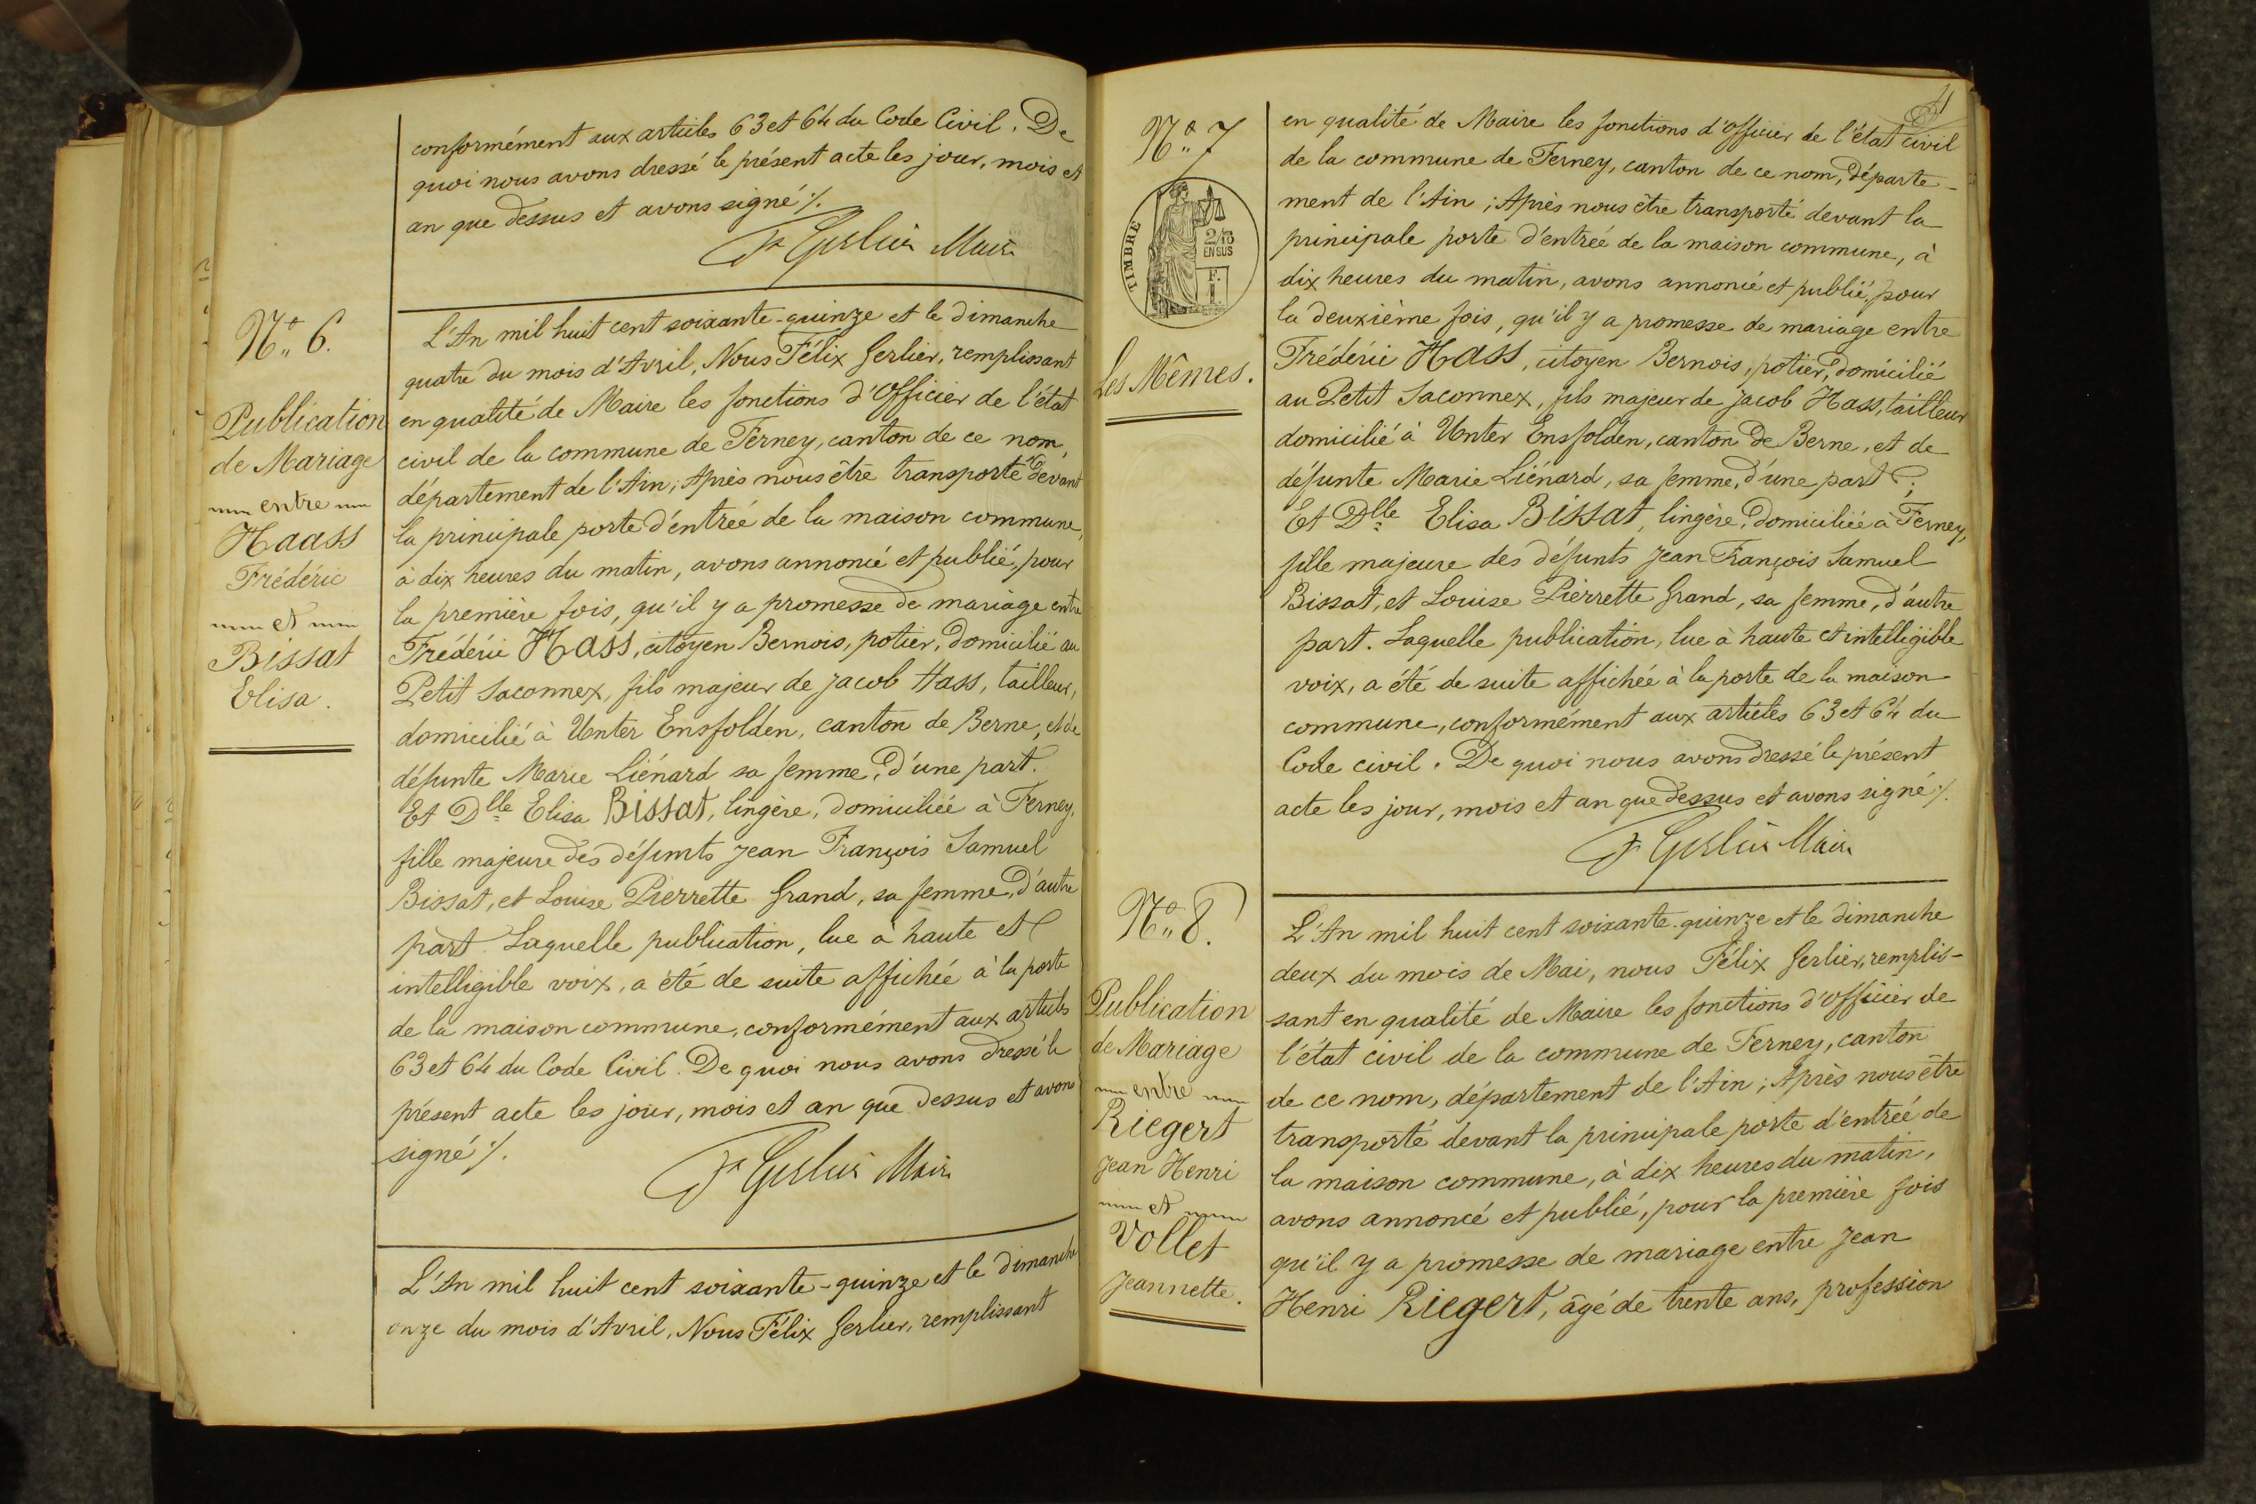 conformément aux articles 63 et 64 du Code Civil. De
quoi nous avons dressé le présent acte les jour, mois et
an que dessus et avons signé ./.
Fx Gerlier Maire
N° 6.
Publication
de Mariage
entre
Haass
Frédéric
et
Bissat
Elisa.
L'An mil huit cent soixante-quinze et le dimanche
quatre du mois d'Avril, Nous Félix Gerlier, remplissant
en qualité de Maire les fonctions d'Officier de l'état
civil de la commune de Ferney, canton de ce nom,
département de l'Ain; Après nous être transporté devant
la principale porte d'entrée de la maison commune,
à dix heures du matin, avons annoncé et publié, pour
la première fois, qu'il y a promesse de mariage entre
Frédéric Hass, citoyen Bernois, potier, domicilié au
Petit Saconnex, fils majeur de Jacob Hass, tailleur,
domicilié à Unter Ensfolden, canton de Berne, et de
défunte Marie Liénard sa femme, d'une part.
Et Dlle Elisa Bissat, lingère, domiciliée à Ferney,
fille majeure des défunts Jean François Samuel
Bissat, et Louise Pierrette Grand, sa femme, d'autre
part. Laquelle publication, lue à haute et
intelligible voix, a été de suite affichée à la porte
de la maison commune, conformément aux articles
63 et 64 du Code Civil. De quoi nous avons dressé le
présent acte les jour, mois et an que dessus et avons
signé ./.
Fx Gerlier Maire
L'An mil huit cent soixante-quinze et le dimanche
onze du mois d'Avril, Nous Félix Gerlier, remplissant
N° 7
TIMBRE
2/10
EN SUS
F.
1.
Les Mêmes.
en qualité de Maire les fonctions d'officier de l'état civil
de la commune de Ferney, canton de ce nom, départe-
ment de l'Ain; Après nous être transporté devant la
principale porte d'entrée de la maison commune, à
dix heures du matin, avons annoncé et publié, pour
la deuxième fois, qu'il y a promesse de mariage entre
Frédéric Hass, citoyen Bernois, potier, domicilié
au Petit Saconnex, fils majeur de Jacob Hass, tailleur
domicilié à Unter Ensfolden, canton de Berne, et de
défunte Marie Liénard, sa femme, d'une part;
Et Dlle Elisa Bissat, lingère, domiciliée à Ferney,
fille majeure des défunts Jean François Samuel
Bissat, et Louise Pierrette Grand, sa femme, d'autre
part. Laquelle publication, lue à haute et intelligible
voix, a été de suite affichée à la porte de la maison
commune, conformément aux articles 63 et 64 du
Code civil. De quoi nous avons dressé le présent
acte les jour, mois et an que dessus et avons signé ./.
Fx Gerlier Maire
N° 8.
Publication
de Mariage
entre
Riegert
Jean Henri
et
Vollet
Jeannette.
L'An mil huit cent soixante-quinze et le dimanche
deux du mois de Mai, nous Félix Gerlier, remplis-
sant en qualité de Maire les fonctions d'officier de
l'état civil de la commune de Ferney, canton
de ce nom, département de l'Ain; Après nous être
transporté devant la principale porte d'entrée de
la maison commune, à dix heures du matin,
avons annoncé et publié, pour la première fois
qu'il y a promesse de mariage entre Jean
Henri Riegert, âgé de trente ans, profession